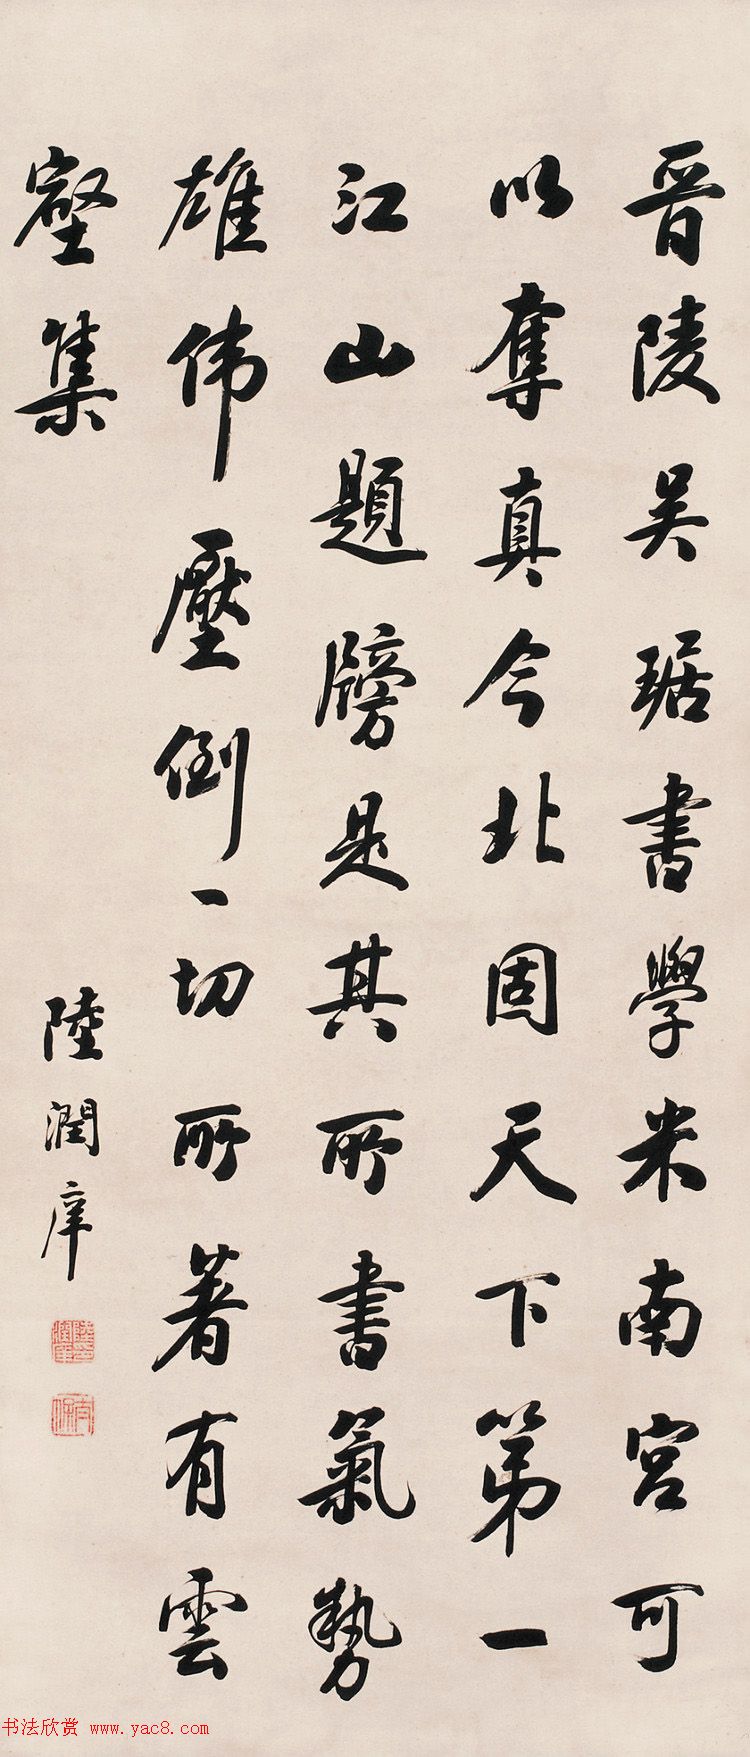 晋陵吴琚書學米南宫可
以奪真今北固天下第一
江山題牓是其所書氣勢
雄偉壓倒一切所著有雲
壑集
陸潤庠
书法欣赏 www.yac8.com